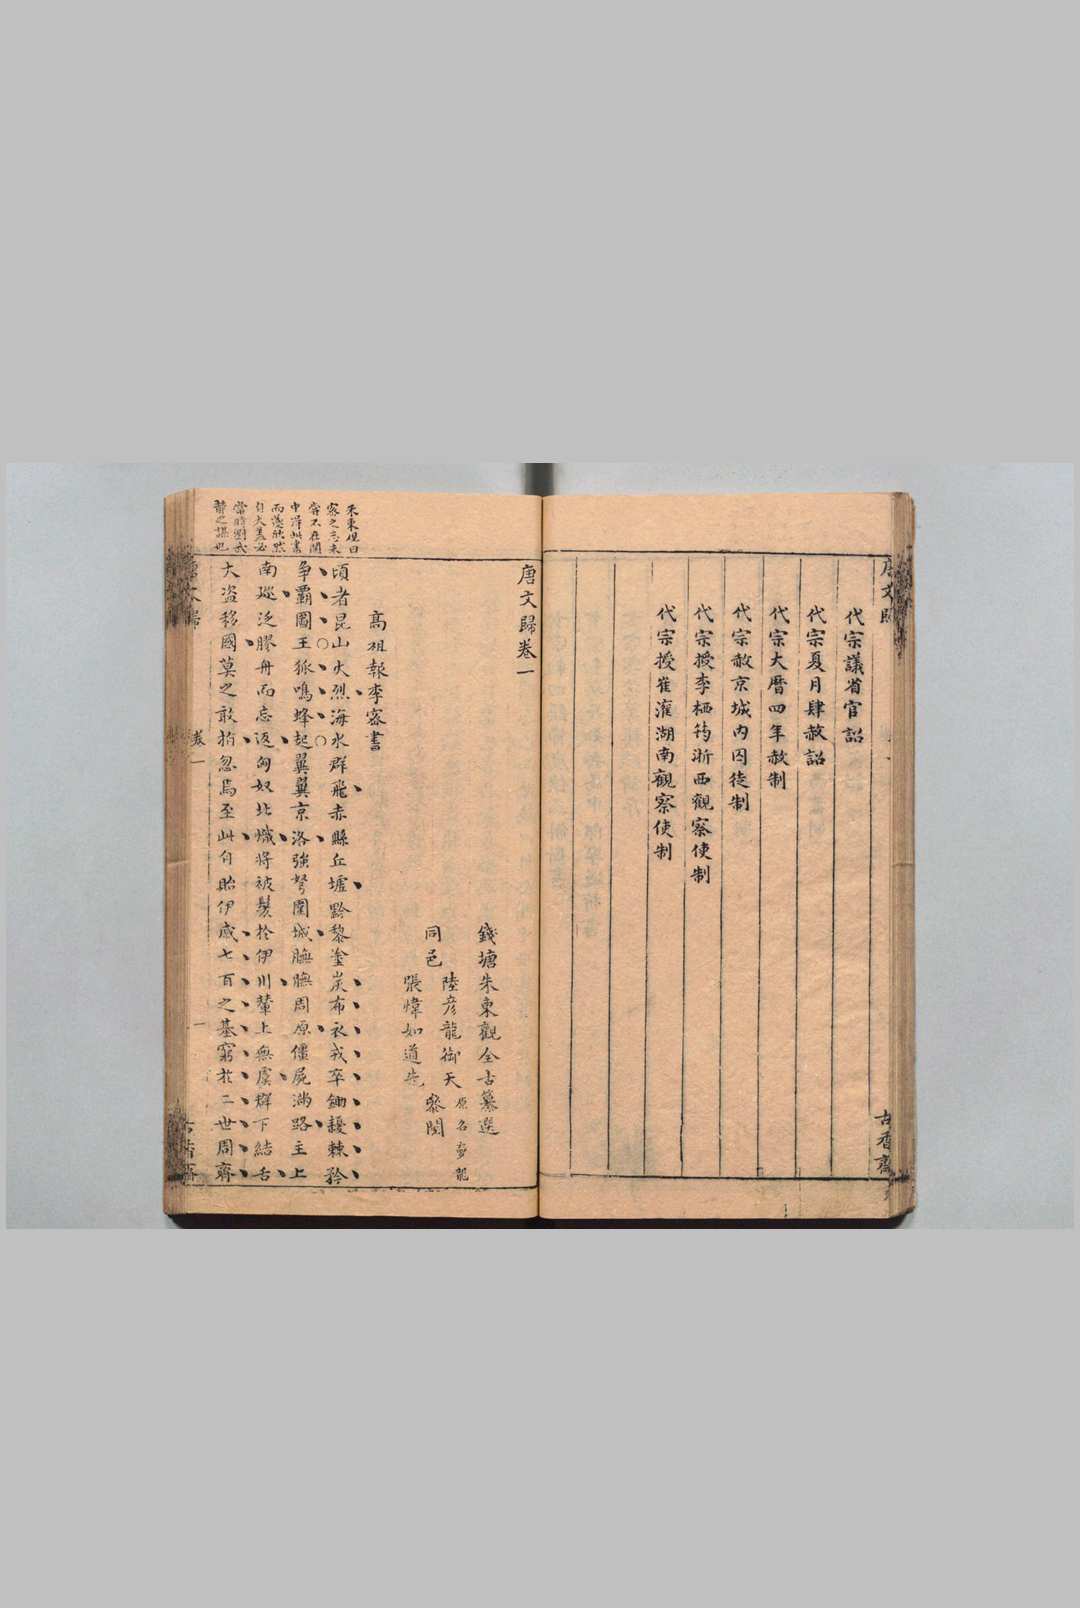 唐文歸
古香齋
代宗議省官詔
代宗夏月肆赦詔
代宗大曆四年赦制
代宗赦京城內囚徒制
代宗授李栖筠浙西觀察使制
代宗授崔灌湖南觀察使制
唐文歸卷一
錢塘朱東觀全古纂選
同邑
陸彥龍御天
原名夢龍
張煒如道先
參閱
高祖報李密書
頃者昆山火烈海水群飛赤縣丘墟黔黎塗炭布衣戎卒鋤耰棘矜
爭霸圖王狐鳴蜂起翼翼京洛強弩圍城膴膴周原僵屍滿路主上
南巡泛膠舟而忘返匈奴北熾將被髮於伊川輦上無虞群下結舌
大盜移國莫之敢指忽焉至此自貽伊慼七百之基窮於二世周齊
朱東觀曰
密之志未
嘗不在關
中得此書
而遂欣然
自大
當時
卷一
一